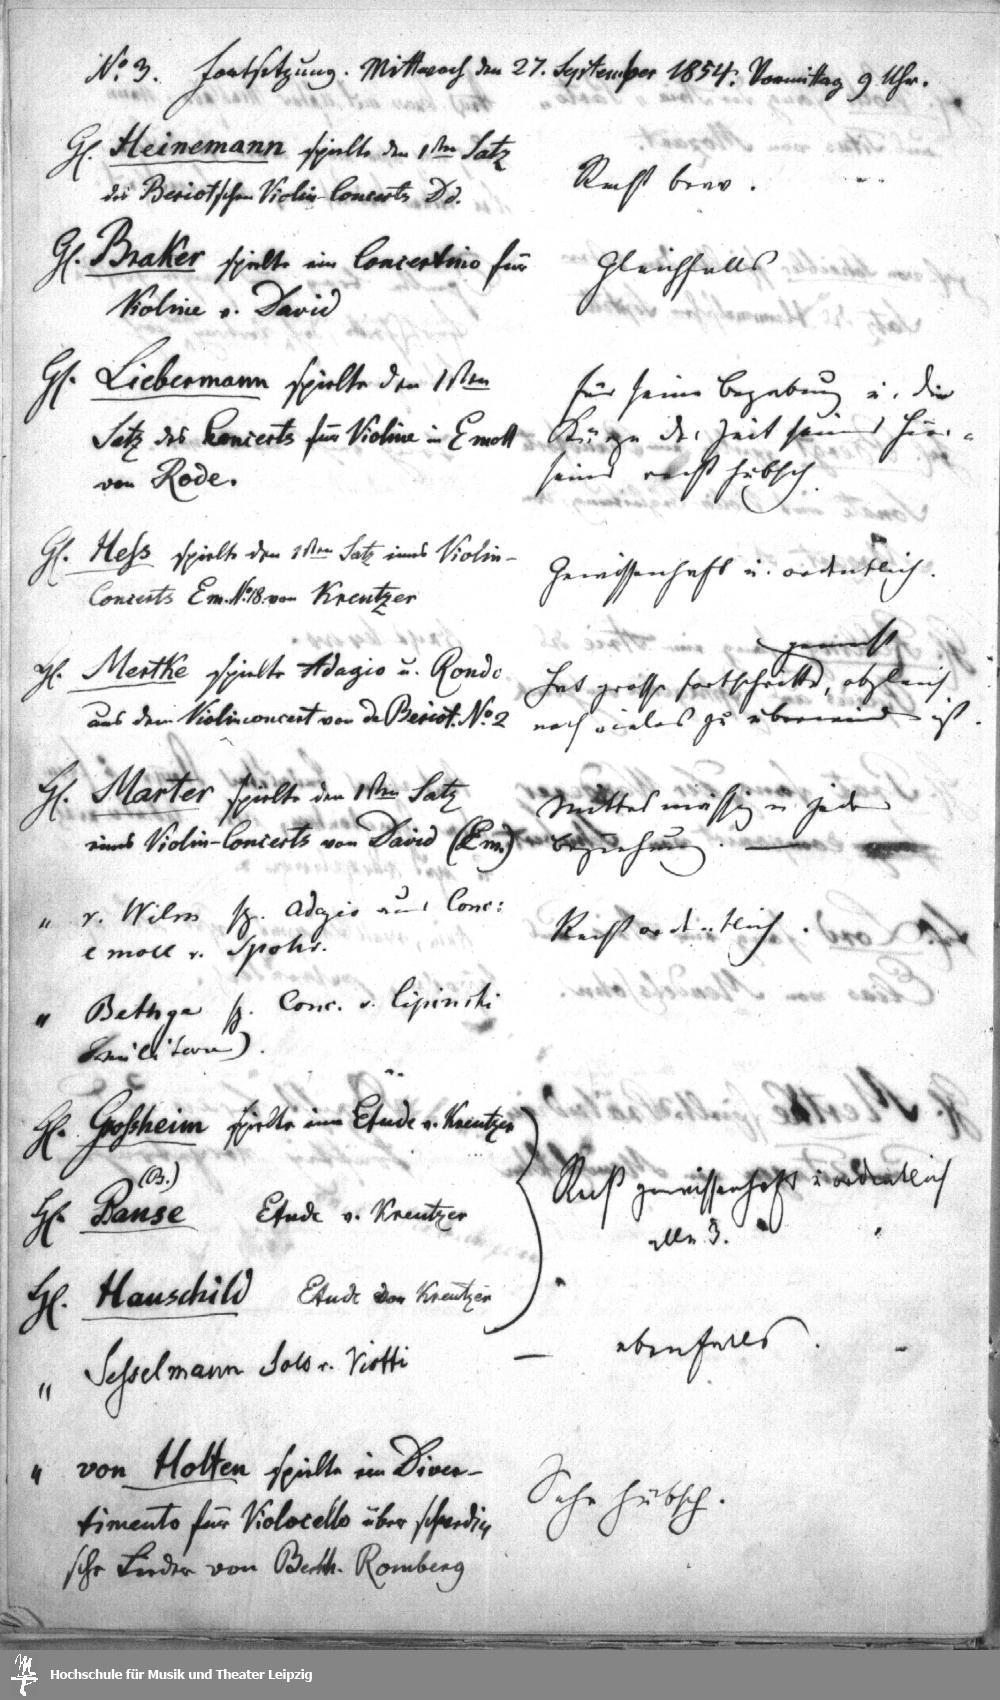 No. 3. Fortsetzung. Mittwoch den 27. September 1854. Vormittag 9 Uhr.
H. Heinemann spielte den 1sten Satz
des Beriotschen Violin-Concerts Dd.
Recht brav.
H. Braker spielte ein Concertino für
Violine v. David
Gleichfalls
H. Liebermann spielte den 1sten
Satz des Concerts für Violine in E moll
von Rode.
für seine Begabung u. die
Kürze der Zeit seines Hier-
seins recht hübsch.
H. Hess spielte den 1sten Satz eines Violin-
Concerts Em. No. 18. von Kreutzer
Gewissenhaft u. ordentlich.
H. Mertke spielte Adagio u. Rondo
aus dem Violinconcert von de Beriot. No. 2
gemacht
Hat grosse Fortschritte, obgleich
noch vieles zu überwinden ist.
H. Marter spielte den 1sten Satz
eines Violin-Concerts von David (Em.)
Mittelmässig in jeder
Beziehung.
" v. Wilm sp. Adagio aus Conc:
e moll v. Spohr.
Recht ordentlich.
" Bethge sp. Conc. v. Lipinski
(militaire).
H. Grossheim spielte eine Etude v. Kreutzer
(B.)
H. Banse Etude v. Kreutzer
Recht gewissenhaft u ordentlich
alle 3.
H. Hauschild Etude von Kreutzer
" Sesselmann Solo v. Viotti
— ebenfalls.
" von Holten spielte ein Diver-
timento für Violocello über schwedi
sche Lieder von Bernh. Romberg
Sehr hübsch.
Hochschule für Musik und Theater Leipzig